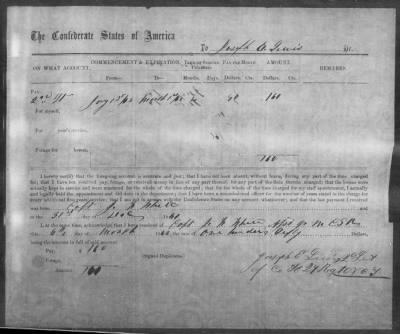 The Confederate States of America
To Joseph C Lewis Dr.
ON WHAT ACCOUNT. COMMENCEMENT & EXPIRATION. TERM OF SERVICE CHARGED. PAY PER MONTH. AMOUNT. REMARKS.
From— To— Months. Days. Dollars. Cts. Dollars. Cts.
PAY.
2nd Lt 80 160
For myself,
For years' service,
FORAGE.
For horses,
160
I hereby certify that the foregoing account is accurate and just; that I have not been absent, without leave, during any part of the time charged
for; that I have not received pay, forage, or received money in lieu of any part thereof, for any part of the time therein charged; that the horses were
actually kept in service and were mustered for the whole of the time charged; that for the whole of the time charged for my staff appointment, I actually
and legally held the appointment and did duty in the department; that I have been a commissioned officer for the number of years stated in the charge for
every additional five years' service; that I am not in arrears with the Confederate States on any account whatsoever; and that the last payment I received
was from Capt
31st day of Dec 186
I, at the same time, acknowledge that I have received of Capt
6th day of March 186 the sum of One hundred Sixty Dollars,
being the amount in full of said account.
Pay, $ 160
Forage,
Amount, 160
(Signed Duplicates.)
Joseph C Lewis 2 Lt